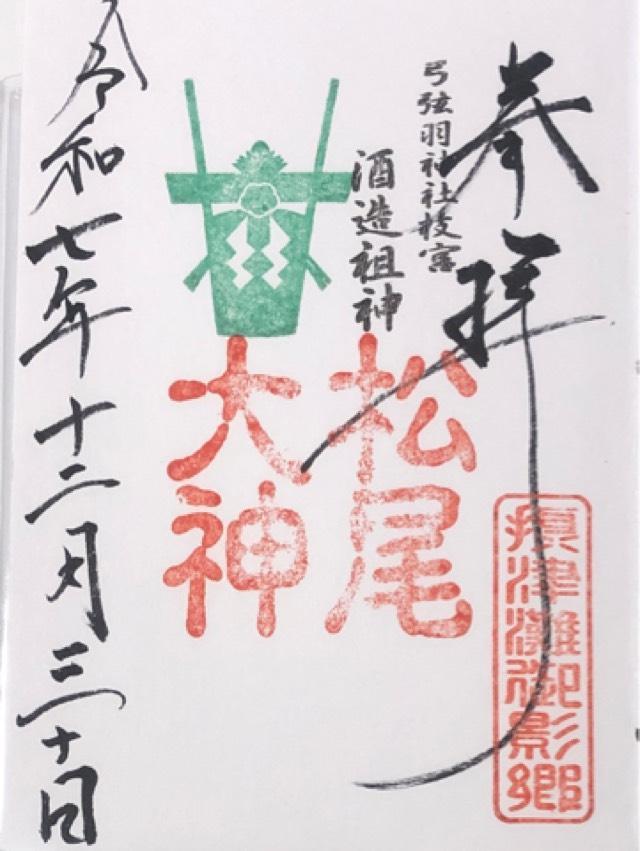 奉拝
弓弦羽神社枝宮
酒造祖神
松尾
大神
摂津灘御影郷
令和七年十二月三十日